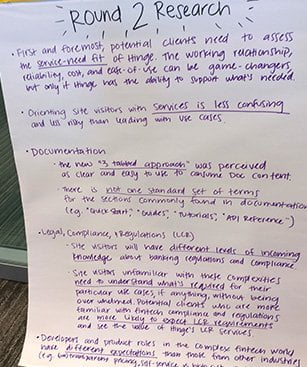 Round 2 Research
• First and foremost, potential clients need to assess
the service-need fit of Hinge. The working relationship,
reliability, cost, and ease-of-use can be game-changers,
but only if Hinge has the ability to support what's needed.
• Orienting site visitors with services is less confusing
and less risky than leading with use cases.
• Documentation
- the new "3 tabbed approach" was perceived
as clear and easy to use to consume Doc content.
- There is not one standard set of terms
for the sections commonly found in documentation
(e.g. "Quick Start", "Guides", "Tutorials", "API Reference")
• Legal, Compliance, & Regulations (LCR)
- Site visitors will have different levels of incoming
knowledge about banking regulations and compliance
- Site visitors unfamiliar with these complexities
need to understand what's required for their
particular use cases, if anything, without being
overwhelmed. Potential clients who are more
familiar with fintech compliance and regulations
are more likely to expect LCR requirements
and see the value of Hinge's LCR services.
• Developers and product roles in the complex fintech world
have different expectations than those from other industries